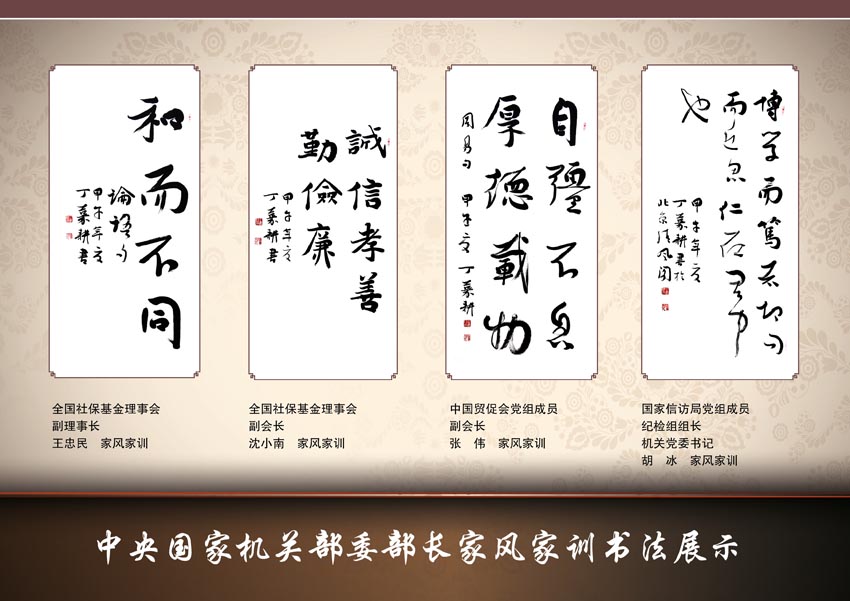 和而不同
论语句
甲午年夏
丁慕耕書
誠信孝善
勤儉廉
甲午年夏
丁慕耕書
自彊不息
厚德載物
周易句 甲午夏 丁慕耕
博学而篤志切问
而近思仁在其中
也
甲午年夏
丁慕耕書於
北京清风阁
全国社保基金理事会
副理事长
王忠民 家风家训
全国社保基金理事会
副会长
沈小南 家风家训
中国贸促会党组成员
副会长
张 伟 家风家训
国家信访局党组成员
纪检组组长
机关党委书记
胡 冰 家风家训
中央国家机关部委部长家风家训书法展示